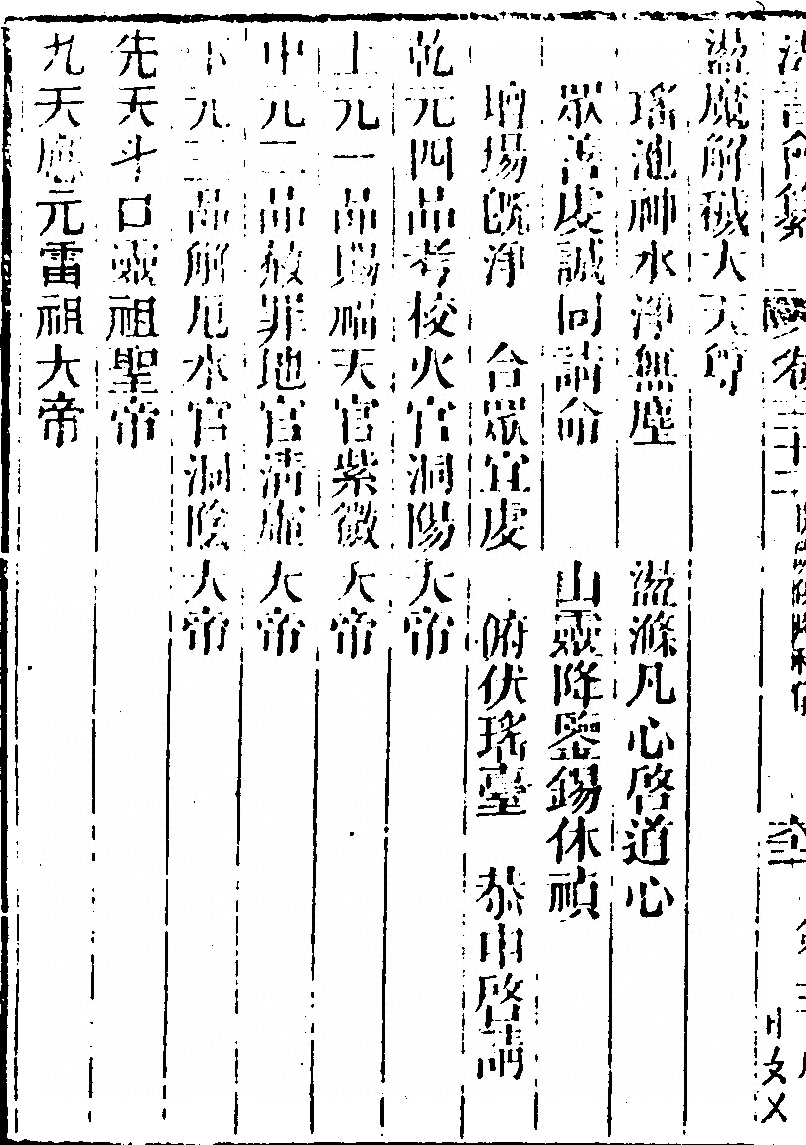 蕩魔解穢大天尊
瑤池神水淨無塵　蕩滌凡心啓道心
眾善虔誠同請命　山靈降鑒錫休禎
壇場既淨　合眾宜虔　俯伏瑤臺　恭申啓請
乾元四品考校火官洞陽大帝
上元一品賜福天官紫微大帝
中元二品赦罪地官清虛大帝
下元三品解厄水官洞陰大帝
先天斗口靈祖聖帝
九天應元雷祖大帝